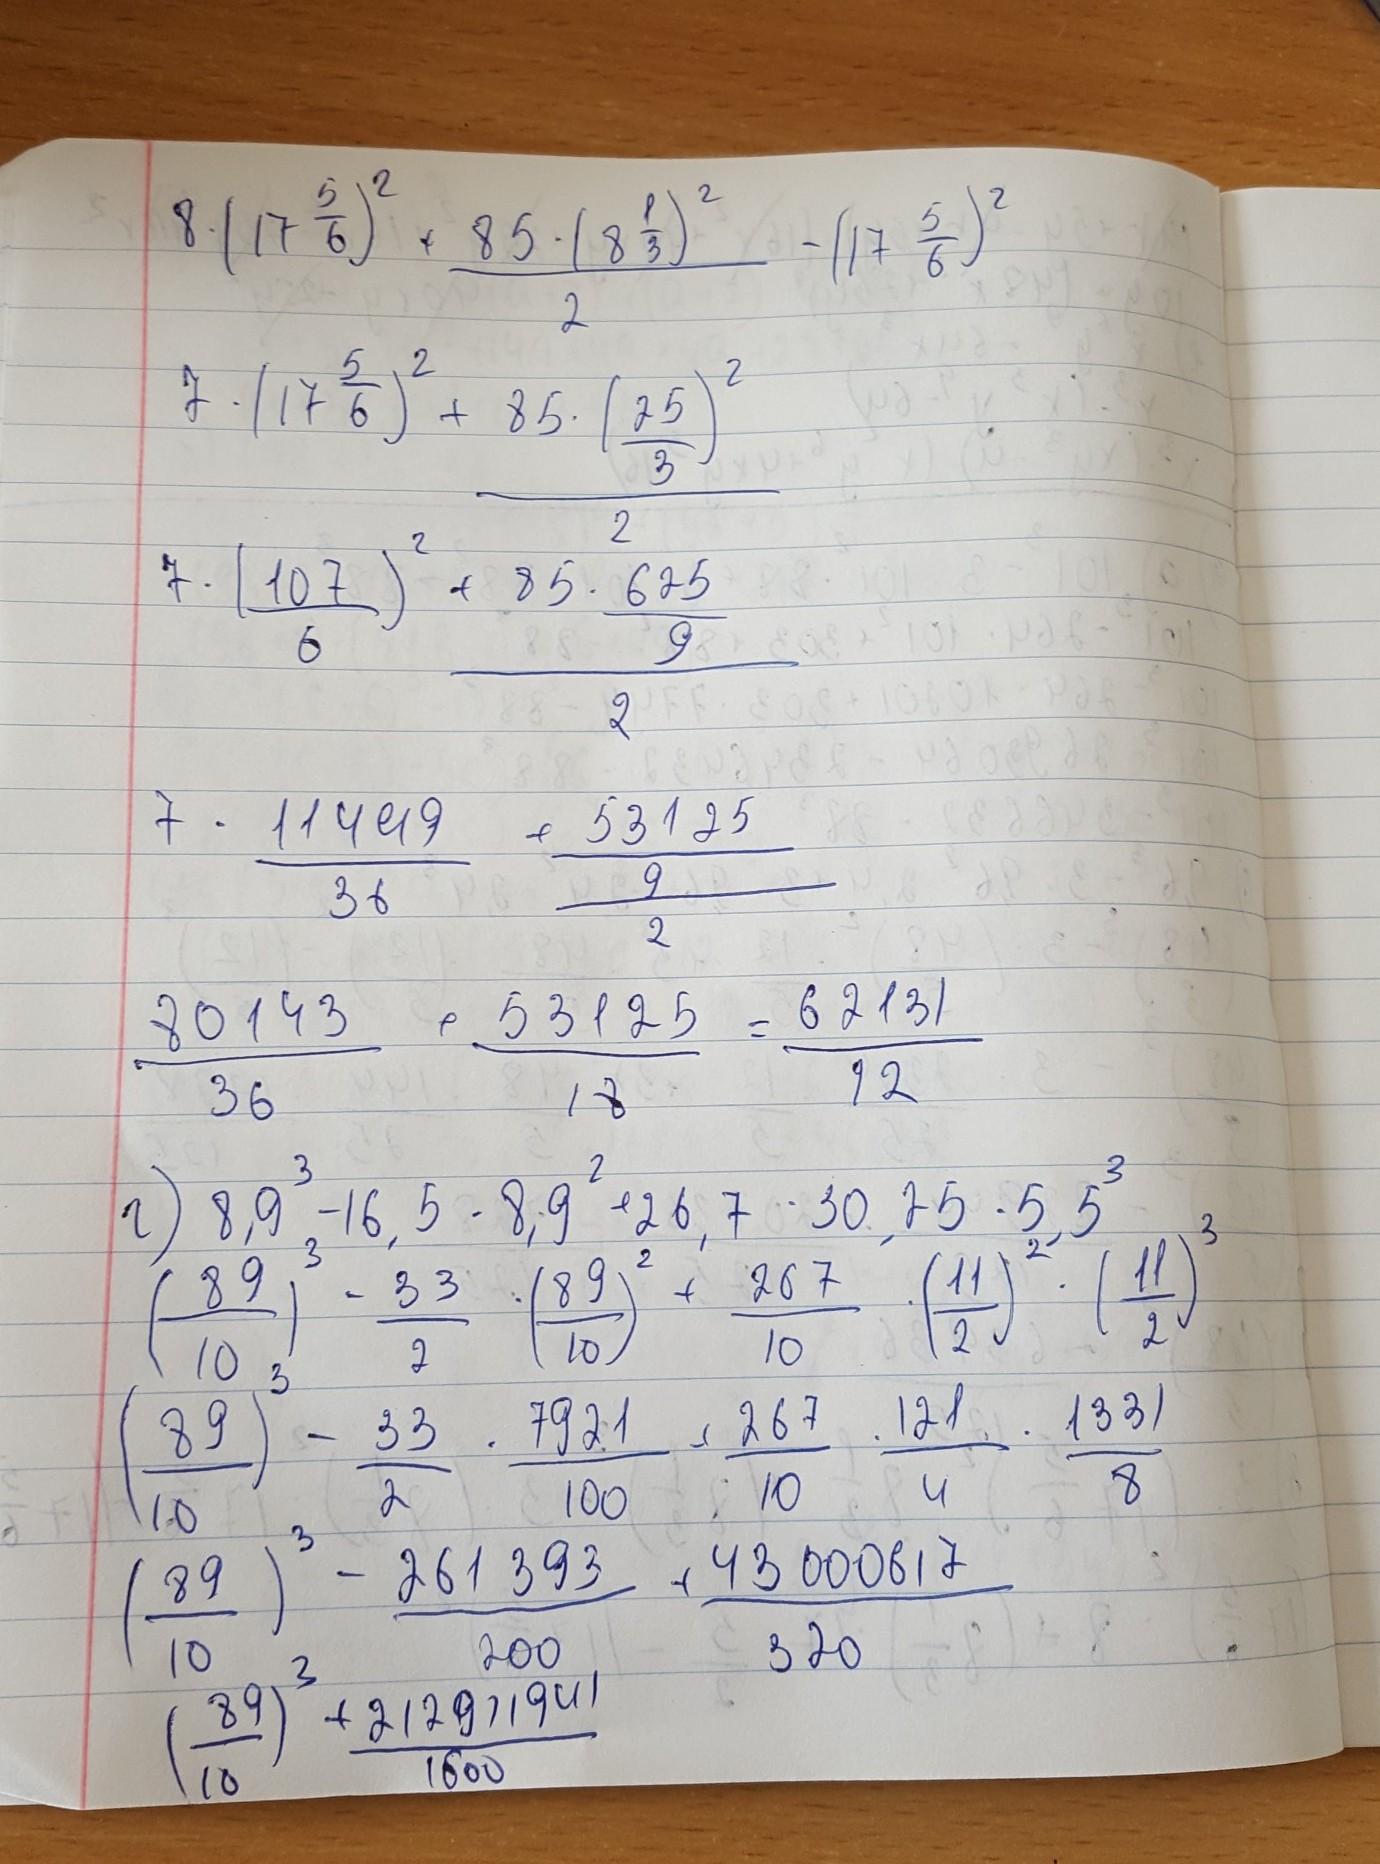 8·(17 5/6)² + 85·(8 1/3)²/2 - (17 5/6)²
7·(17 5/6)² + 85·(25/3)²/2
7·(107/6)² + 85·625/9/2
7·11449/36 + 53125/9/2
80143/36 + 53125/18 = 62131/12
г) 8,9³ - 16,5 · 8,9² + 26,7 · 30,25 · 5,5³
(89/10)³ - 33/2 · (89/10)² + 267/10 · (11/2)² · (11/2)³
(89/10)³ - 33/2 · 7921/100 + 267/10 · 121/4 · 1331/8
(89/10)³ - 261393/200 + 43000617/320
(89/10)³ + 212911941/1600